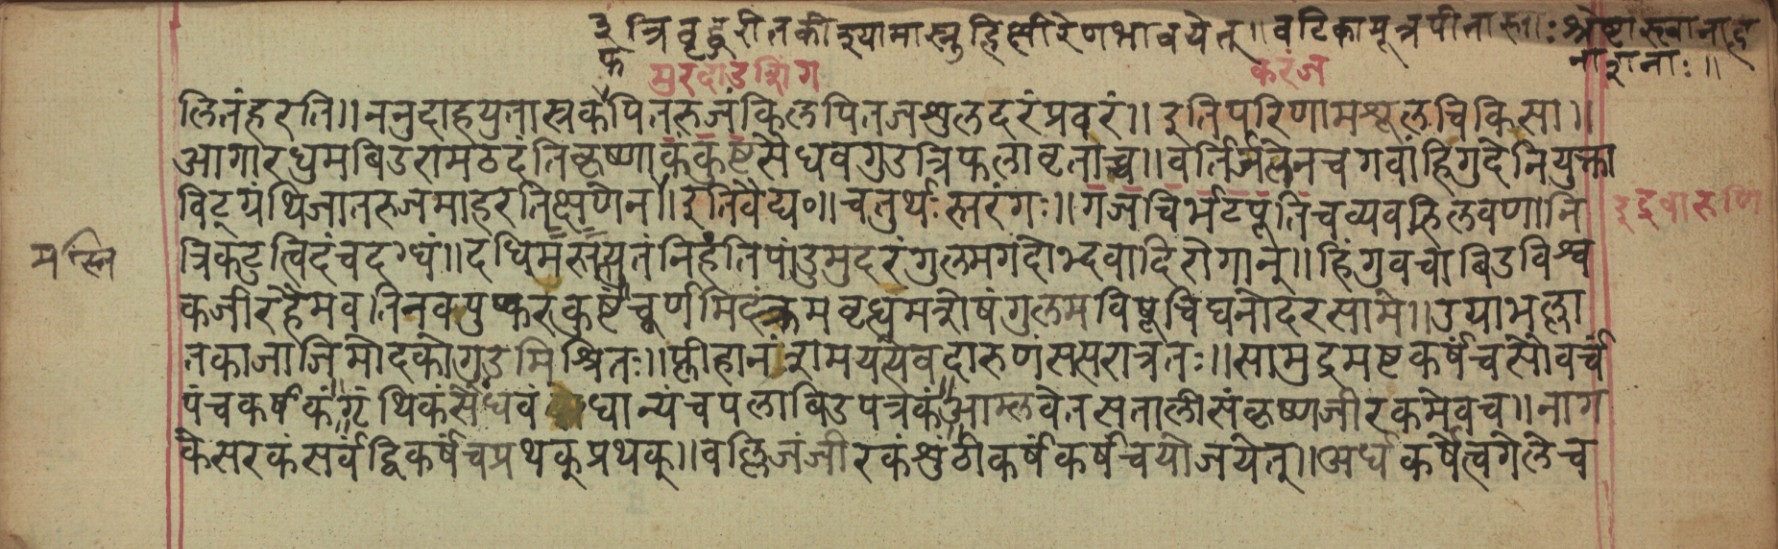 त्रिवृद्धरीतकीश्यामास्नुहिक्षीरेणभावयेत्॥वटिकामूत्रपीतास्ताः
नाशनाः॥
मुरदाडशिंग
करंज
लितंहरति॥ननुदाहयुतास्त्रकपित्तरुजंकिलपित्तजशुलदरंप्रवरं॥इतिपरिणामश्रूलचिकित्सा॥
आगारधुमबिडरामठदंतिकृष्णाकंकुष्टसैंधवगुडत्रिफलावृताच्च॥वर्तिर्जलेनचगवांहिगुदेनियुक्ता
विट्ग्रंथिजातरुजमाहरतिक्षणेन॥इतिवैद्य०॥चतुर्थःस्तरंगः॥गजचिर्भटपूतिचव्यवह्निलवणानि
त्रिकटुत्विदंचदग्धं॥दधिमस्तुयुतंनिहंतिपांडुमुदरंगुलमगदोद्भवादिरोगान्॥हिंगुवचाबिडविश्व
कजीरहैमवतिनकपुष्करकुष्टंचूर्णमिदंक्रमवृध्यमशेषंगुलमविषूचिघनोदरसामे॥उयाभल्ला
तकाजाजिमोदकोगुडमिश्रितः॥प्लीहानंशमयत्येवदारुणंससरात्रतः॥सामुद्रमष्टकर्षंचसौवर्चं
पंचकर्षकंग्रंथिकंसैंधवं धान्यंचपलाबिडपत्रकंआम्लवेतसतालीसंकृष्णजीरकमेवच॥नाग
केसरकंसर्वंद्विकर्षंचप्रथक्प्रथक्॥वल्लिजंजीरकंशुंठीकर्षंकर्षंचयोजयेत्॥अर्धकर्षंत्वगेलेच